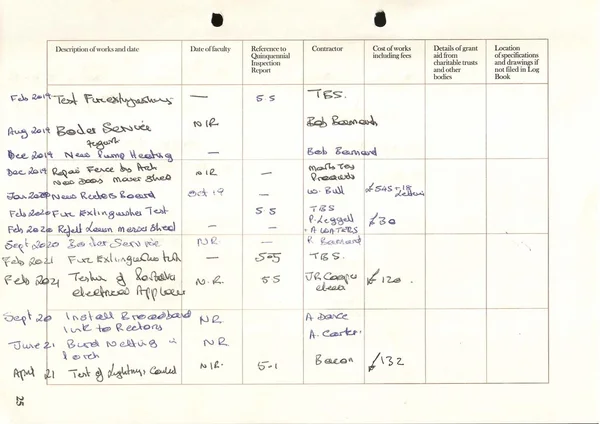 Description of works and date Date of faculty Reference to Quinquennial Inspection Report Contractor Cost of works including fees Details of grant aid from charitable trusts and other bodies Location of specifications and drawings if not filed in Log Book
Feb 2019 Test Fire — 5 5 TBS.
Aug 2019 Boiler Service NIR Bob Barnard
Dec 2019 New Pump Heating — Bob Barnard
Dec 2019 Repair Fence by Arch NIR —
New Doors Mower Shed
Jan 2020 New Rectors Board Oct 19 — W. Bull £545 + 18
Feb 2020 Fire Extinguisher Test 5 5 TBS
Feb 2020 Refelt Lawn mower Shed — — P. Leggett + A WATERS £30
Sept 2020 Boiler Service NR — R Barnard
Feb 2021 Fire — 5.5 TBS.
Feb 2021 Testing of Portable N.R. 5 5 JR Cooper £120.
electrical Appliance
Sept 20 Install Broadband NR A. Dance
link to Rectors
June 21 Bird Netting in NR A. Carter.
Porch
April 21 Test of Lightning NIR. 5-1 Beacon £132
25